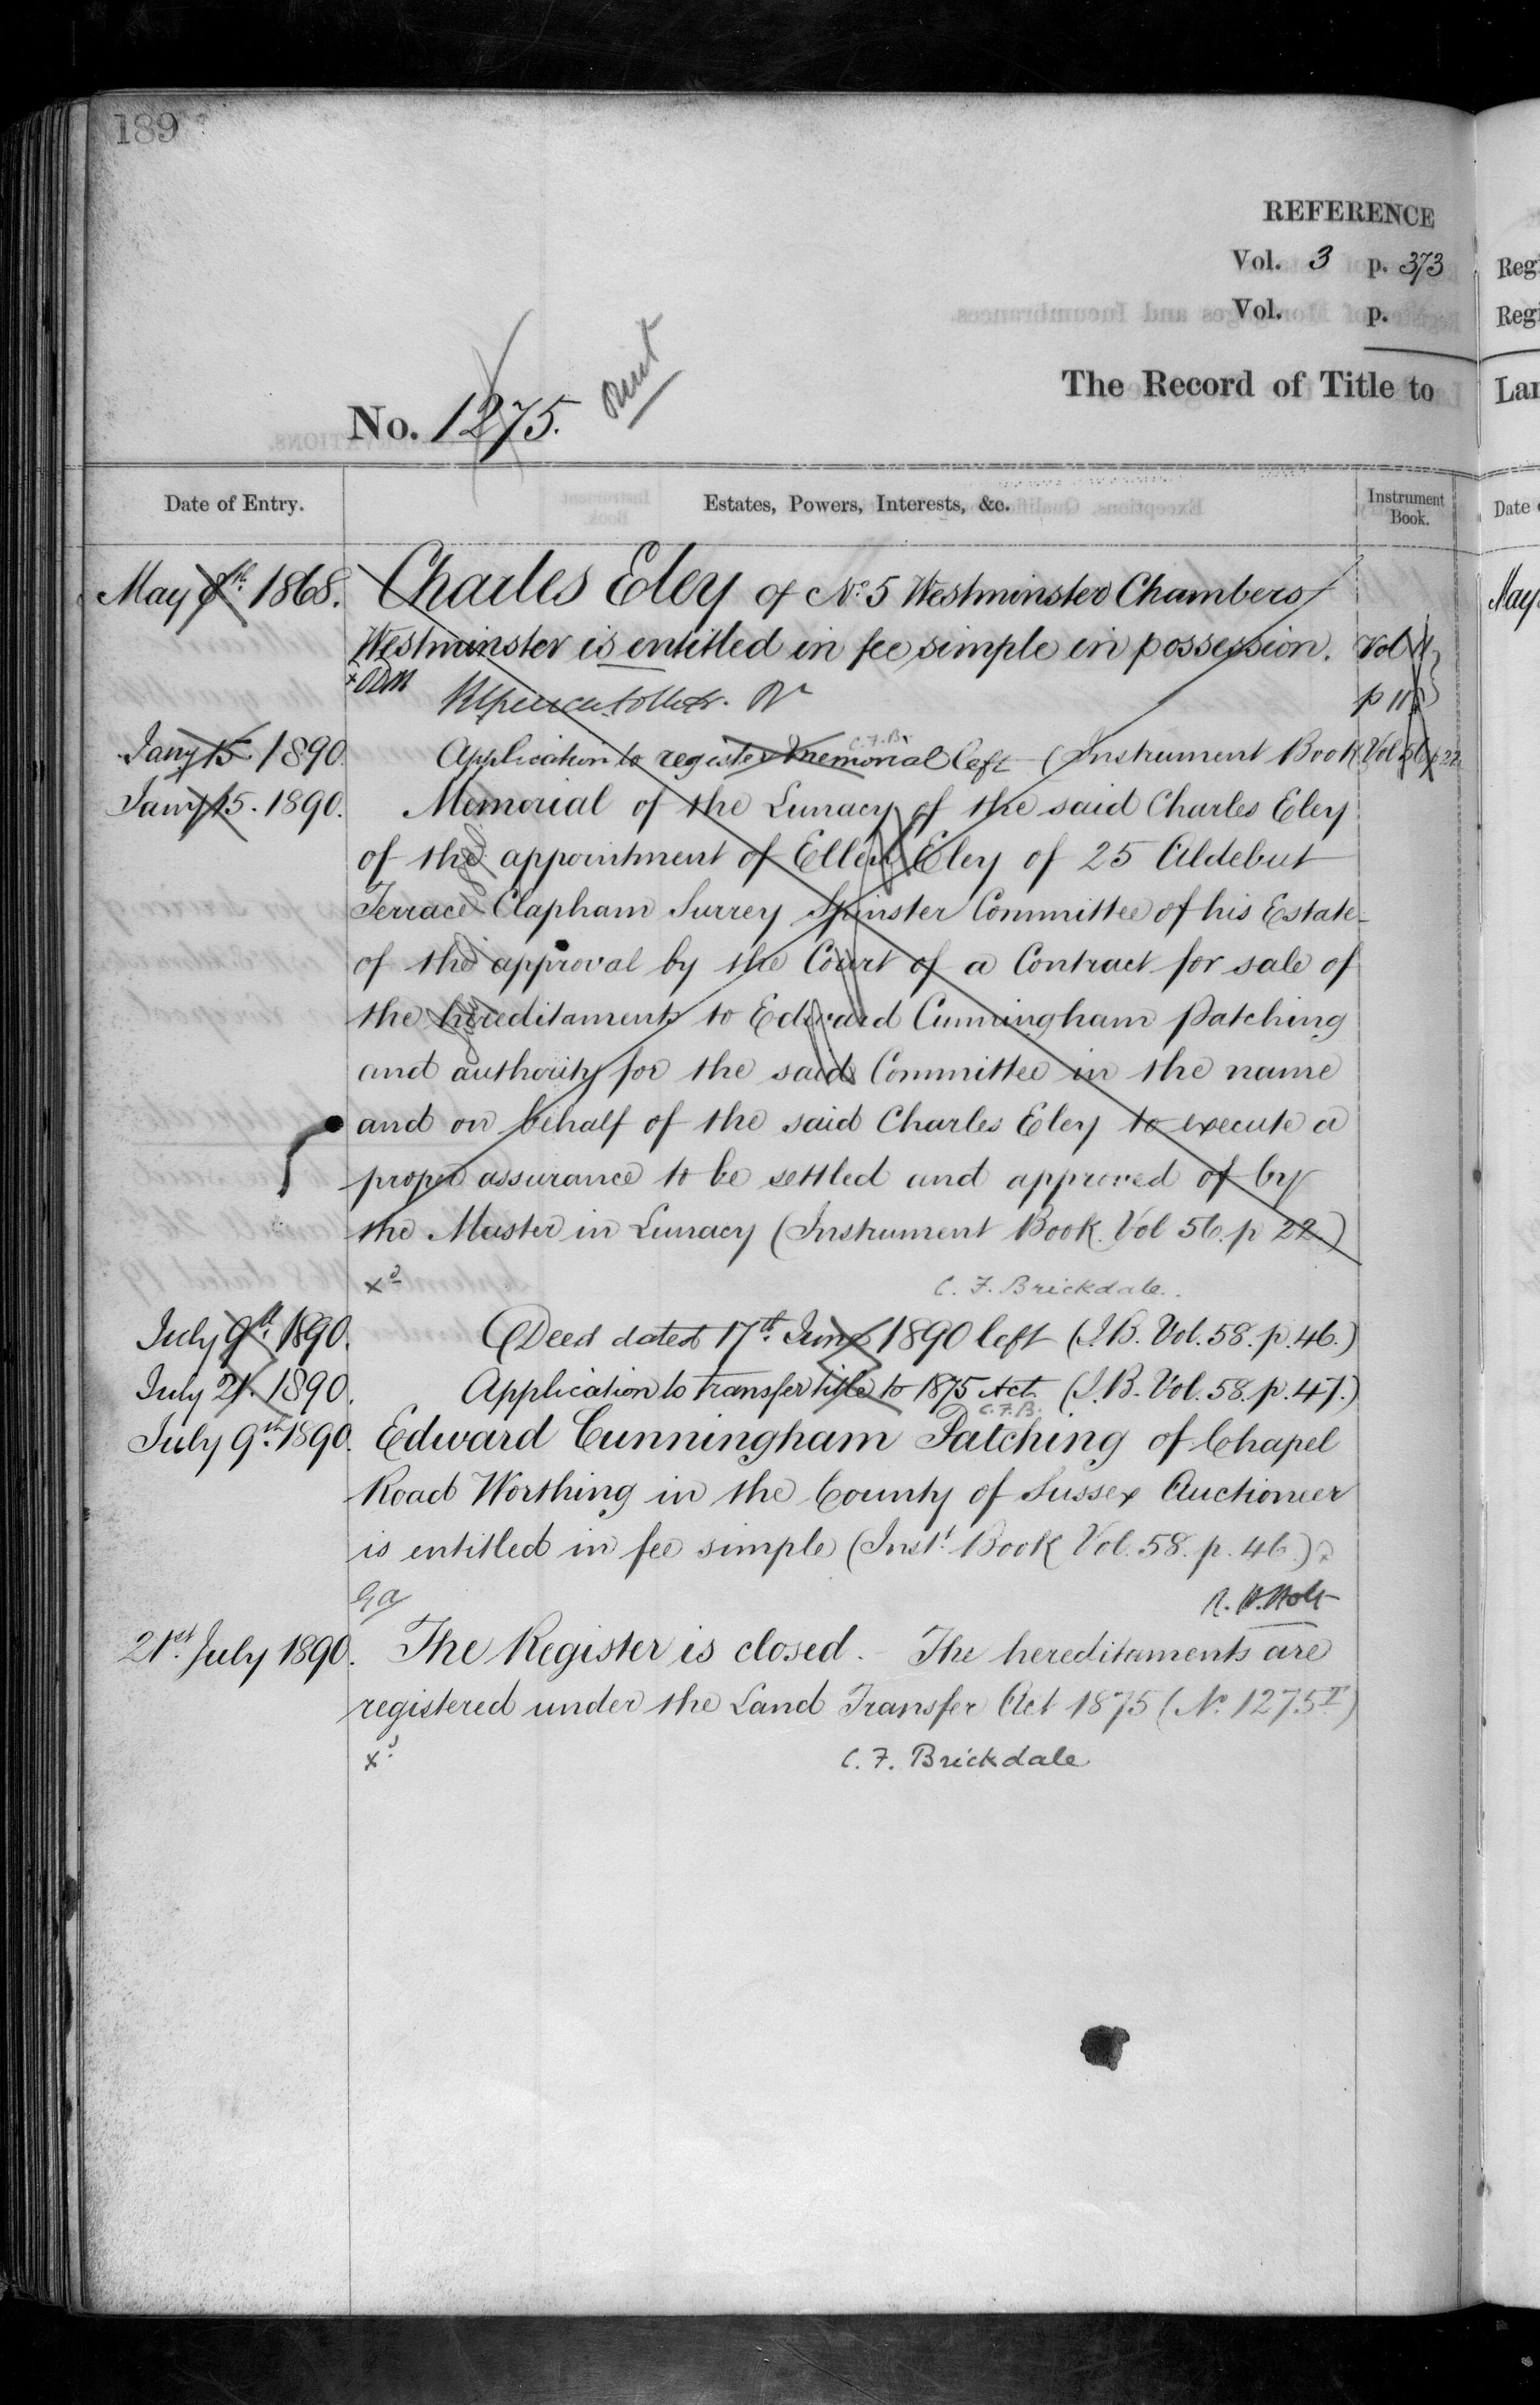 189
REFERENCE
Vol. 3 p. 373
Vol. p.
The Record of Title to
No. 1275.
Date of Entry. Estates, Powers, Interests, &c. Instrument Book.
May 8th. 1868. Charles Eley of No. 5 Westminster Chambers
Westminster is entitled in fee simple in possession. Vol
p 11
Jany 15. 1890. Application to register Memorial left (Instrument Book Vol 56 p 22
C.F.B.
Jany 15. 1890. Memorial of the Lunacy of the said Charles Eley
of the appointment of Ellen Eley of 25 Aldebut
Terrace Clapham Surrey Spinster Committee of his Estate
of the approval by the Court of a Contract for sale of
the hereditaments to Edward Cunningham Patching
and authority for the said Committee in the name
and on behalf of the said Charles Eley to execute a
proper assurance to be settled and approved of by
the Master in Lunacy (Instrument Book. Vol 56. p 22)
C. F. Brickdale.
July 9th. 1890. Deed dated 17th. June 1890 left (I.B. Vol. 58. p. 46.)
July 21. 1890. Application to transfer title to 1875 Act. (I.B. Vol. 58. p. 47.)
C.F.B.
July 9th. 1890. Edward Cunningham Patching of Chapel
Road Worthing in the County of Sussex Auctioneer
is entitled in fee simple (Inst. Book Vol. 58. p. 46.)
R. H. Holt
21st. July 1890. The Register is closed. - The hereditaments are
registered under the Land Transfer Act 1875 (No. 1275T)
C. F. Brickdale
Reg
Reg
Lan
Date
May